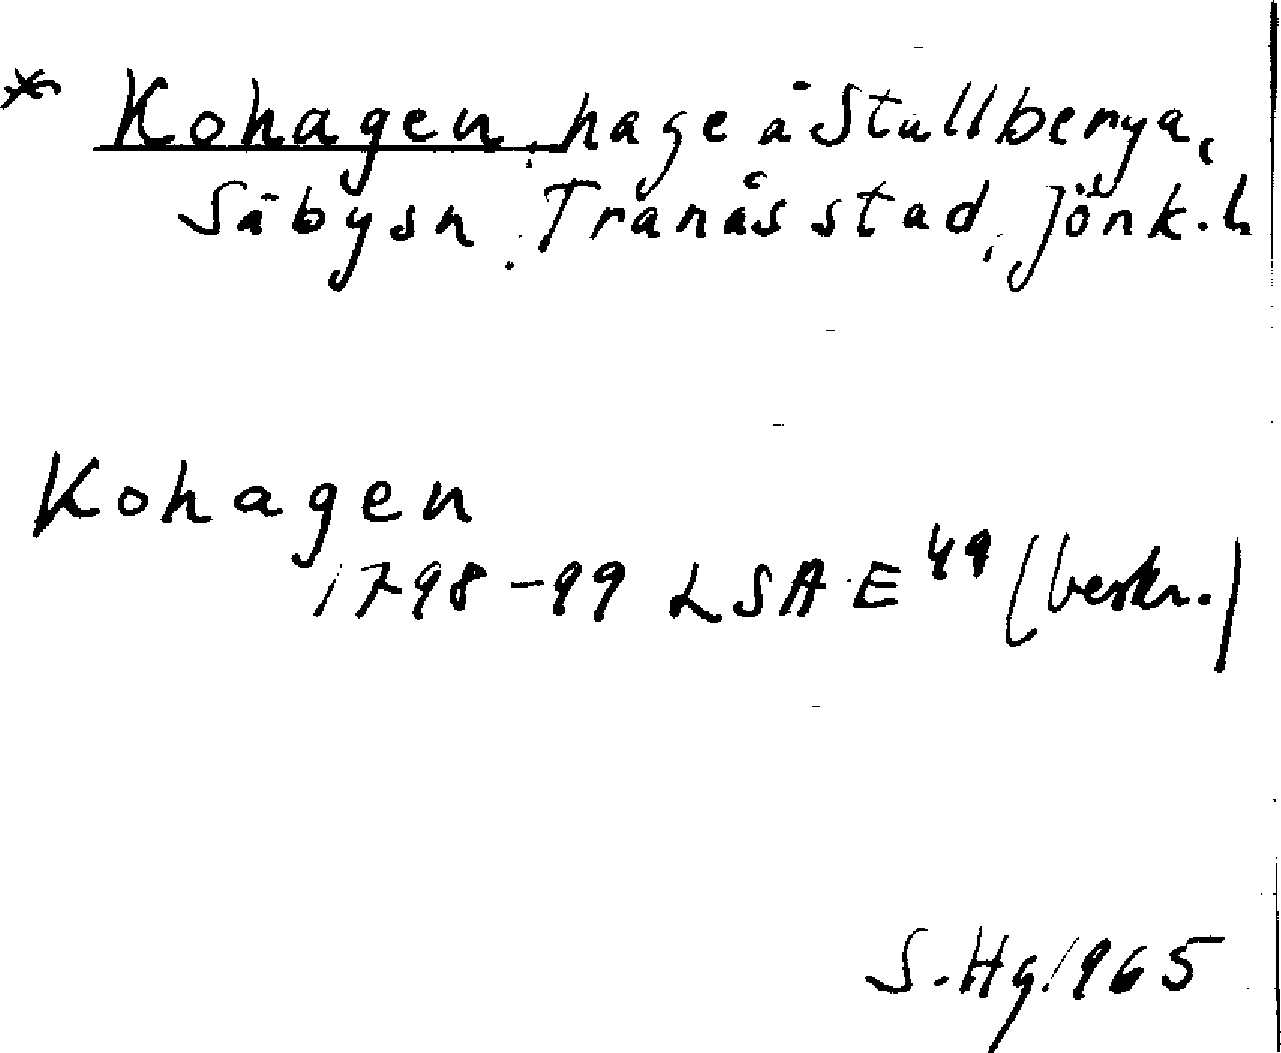 * Kohagen, hage å Stallberga,
Säby sn, Tranås stad, Jönk. l.
Kohagen
1798-99 LSA E 49 (beskr.)
S. Hg 1965